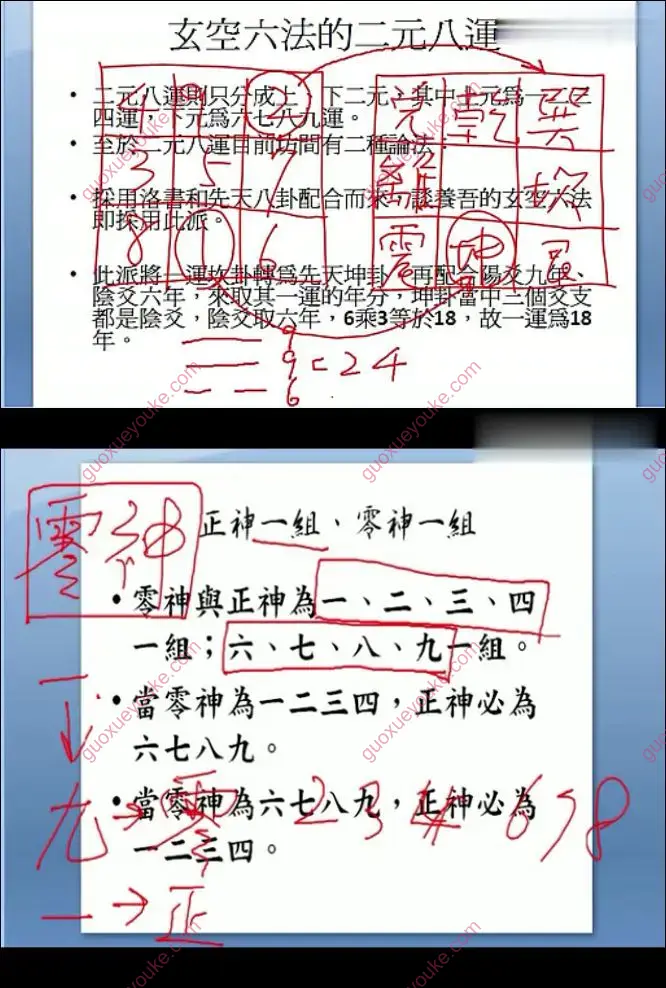 玄空六法的二元八運
• 二元八運則只分成上、下二元，其中上元為一二三
四運，下元為六七八九運。
• 至於二元八運目前坊間有二種論法
• 採用洛書和先天八卦配合而來，談養吾的玄空六法
即採用此派。
• 此派將一運坎卦轉為先天坤卦，再配合陽爻九年、
陰爻六年，來取其一運的年分，坤卦當中三個爻支
都是陰爻，陰爻取六年，6乘3等於18，故一運為18
年。
4 9 2
3 5 7
8 1 6
兌 乾 巽
離 坎
震 坤 艮
9
9 = 24
6
零神
正神一組、零神一組
• 零神與正神為一、二、三、四
一組；六、七、八、九一組。
• 當零神為一二三四，正神必為
六七八九。
• 當零神為六七八九，正神必為
一二三四。
一
↓
九 → 零
2 3 4 6 7 8
一 → 正
guoxueyouke.com
guoxueyouke.com
guoxueyouke.com
guoxueyouke.com
guoxueyouke.com
guoxueyouke.com
guoxueyouke.com
guoxueyouke.com